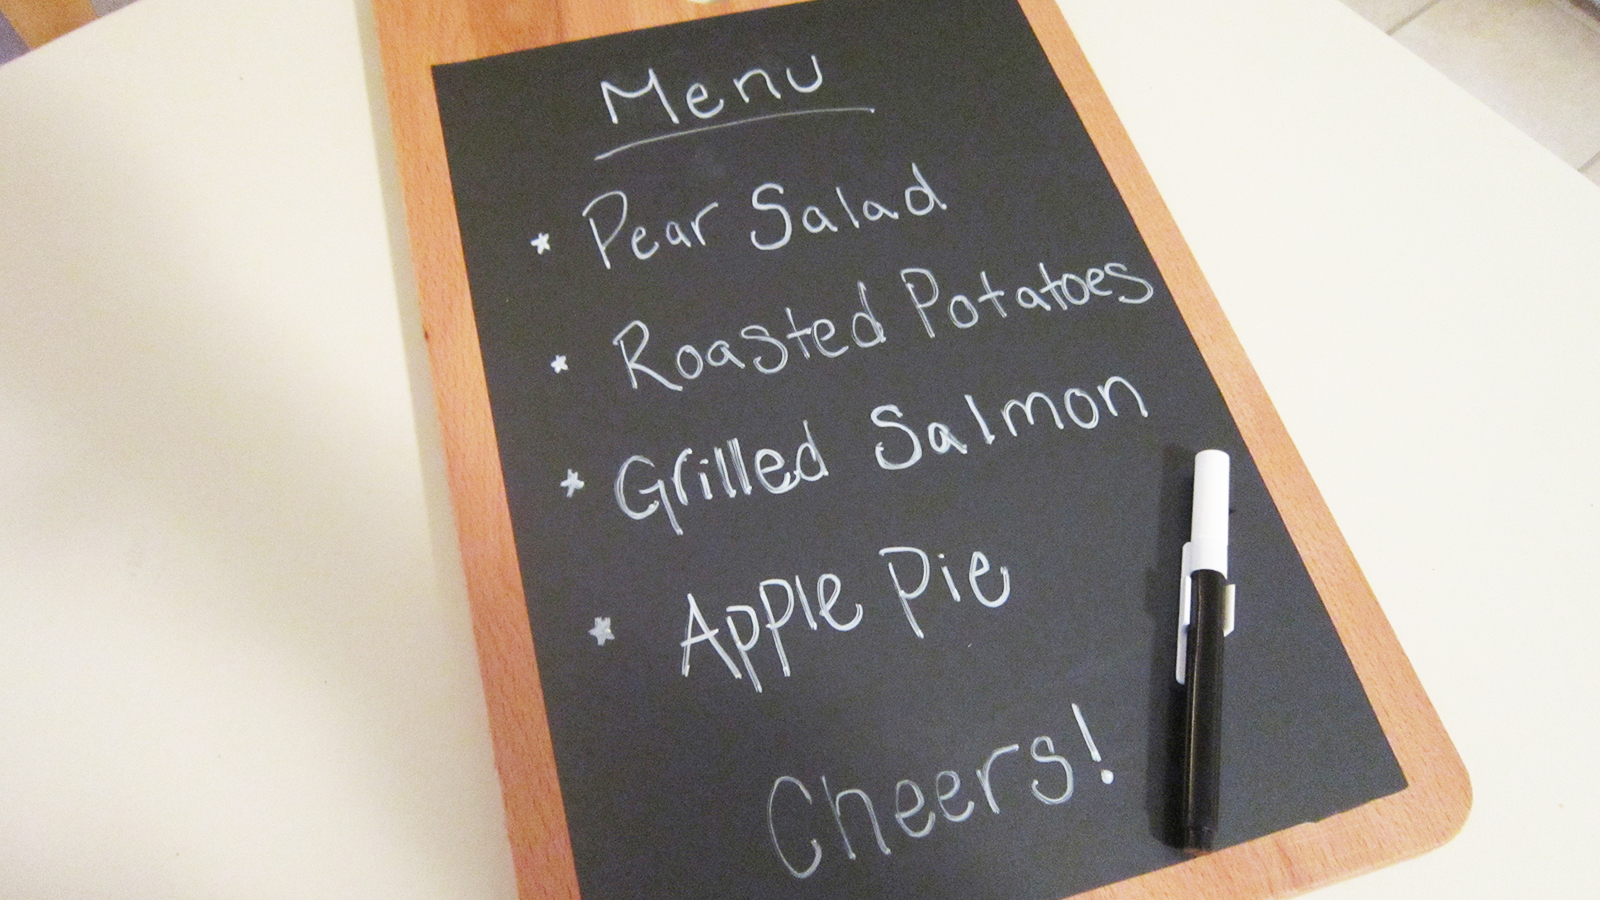 Menu
* Pear Salad
* Roasted Potatoes
* Grilled Salmon
* Apple Pie
Cheers!